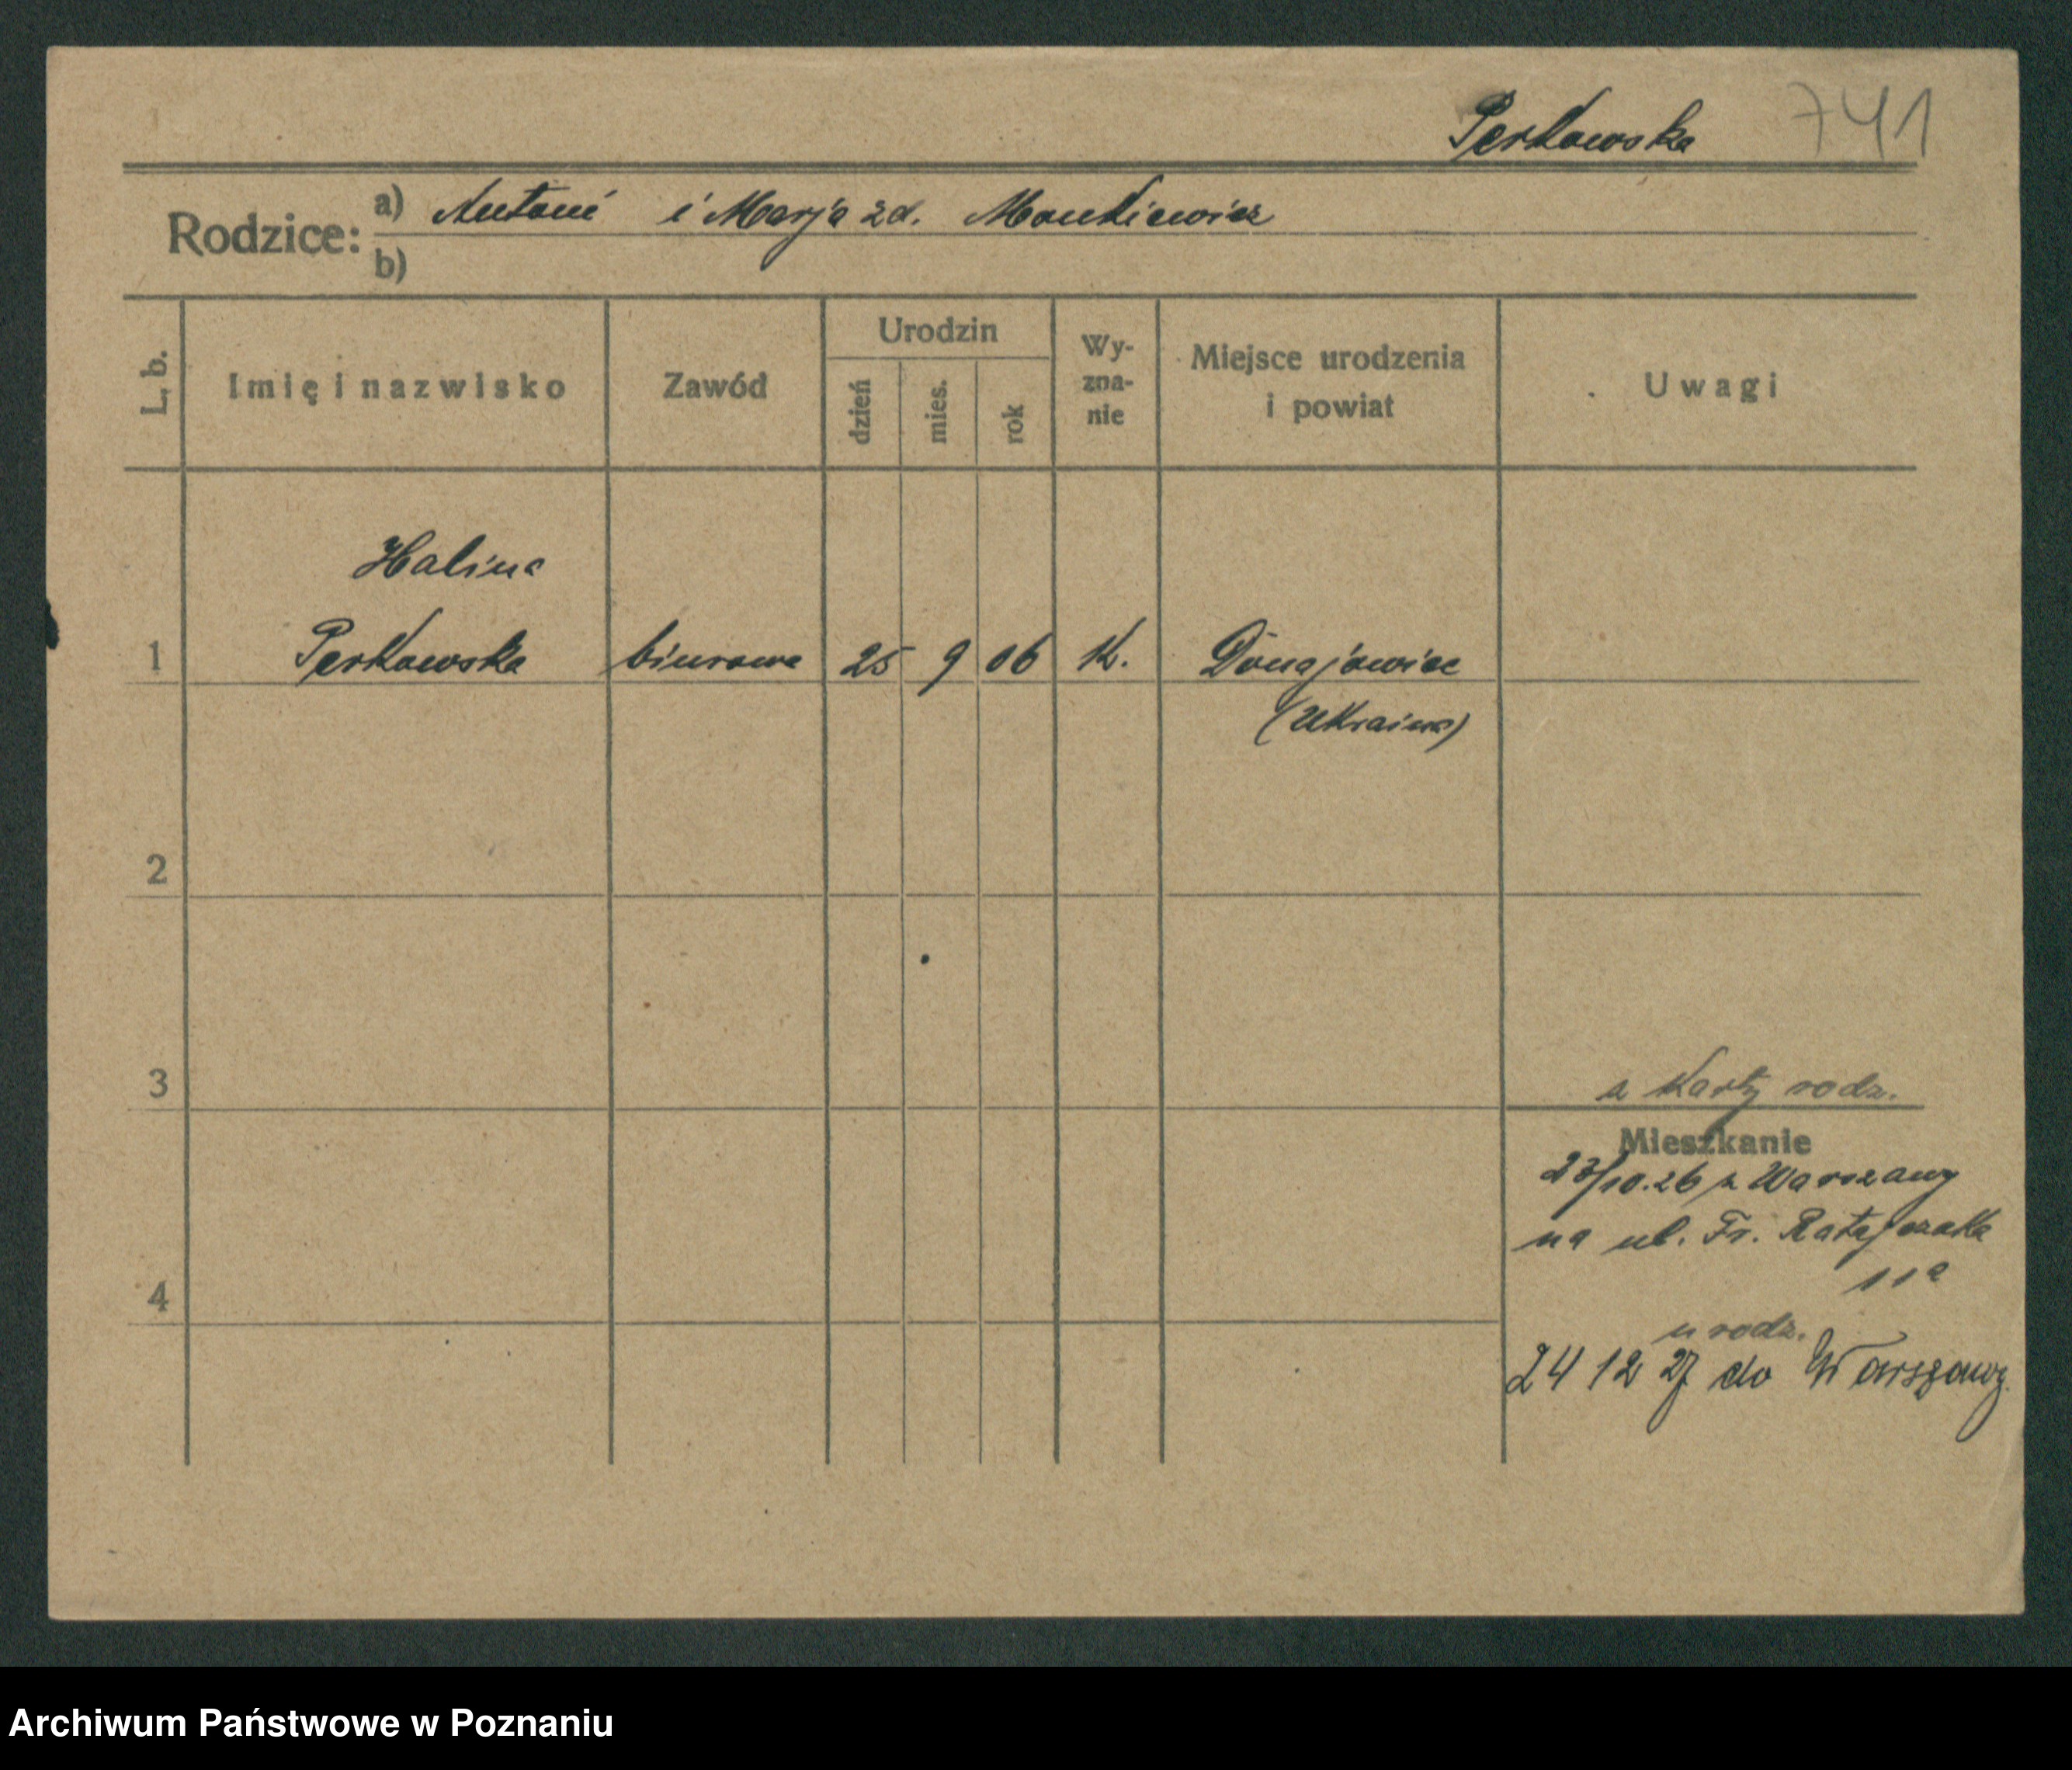 Perkowska 741
Rodzice: a) Antoni i Marja zd. Mankiewicz
b)
L. b. Imię i nazwisko Zawód Urodzin dzień mies. rok Wy-zna-nie Miejsce urodzenia i powiat Uwagi
Halina
1 Perkowska biurowa 25 9 06 K. Dunajowiec
(Ukraina)
2
3
z karty rodz.
Mieszkanie
23/10.26 z Warszawy
na ul. Fr. Ratajczaka
11a
4
u rodz.
24 12 27 do Warszawy.
Archiwum Państwowe w Poznaniu